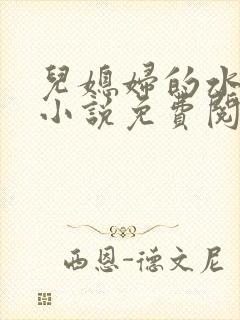 兒媳婦的水
小說免費閱
西恩-德文尼